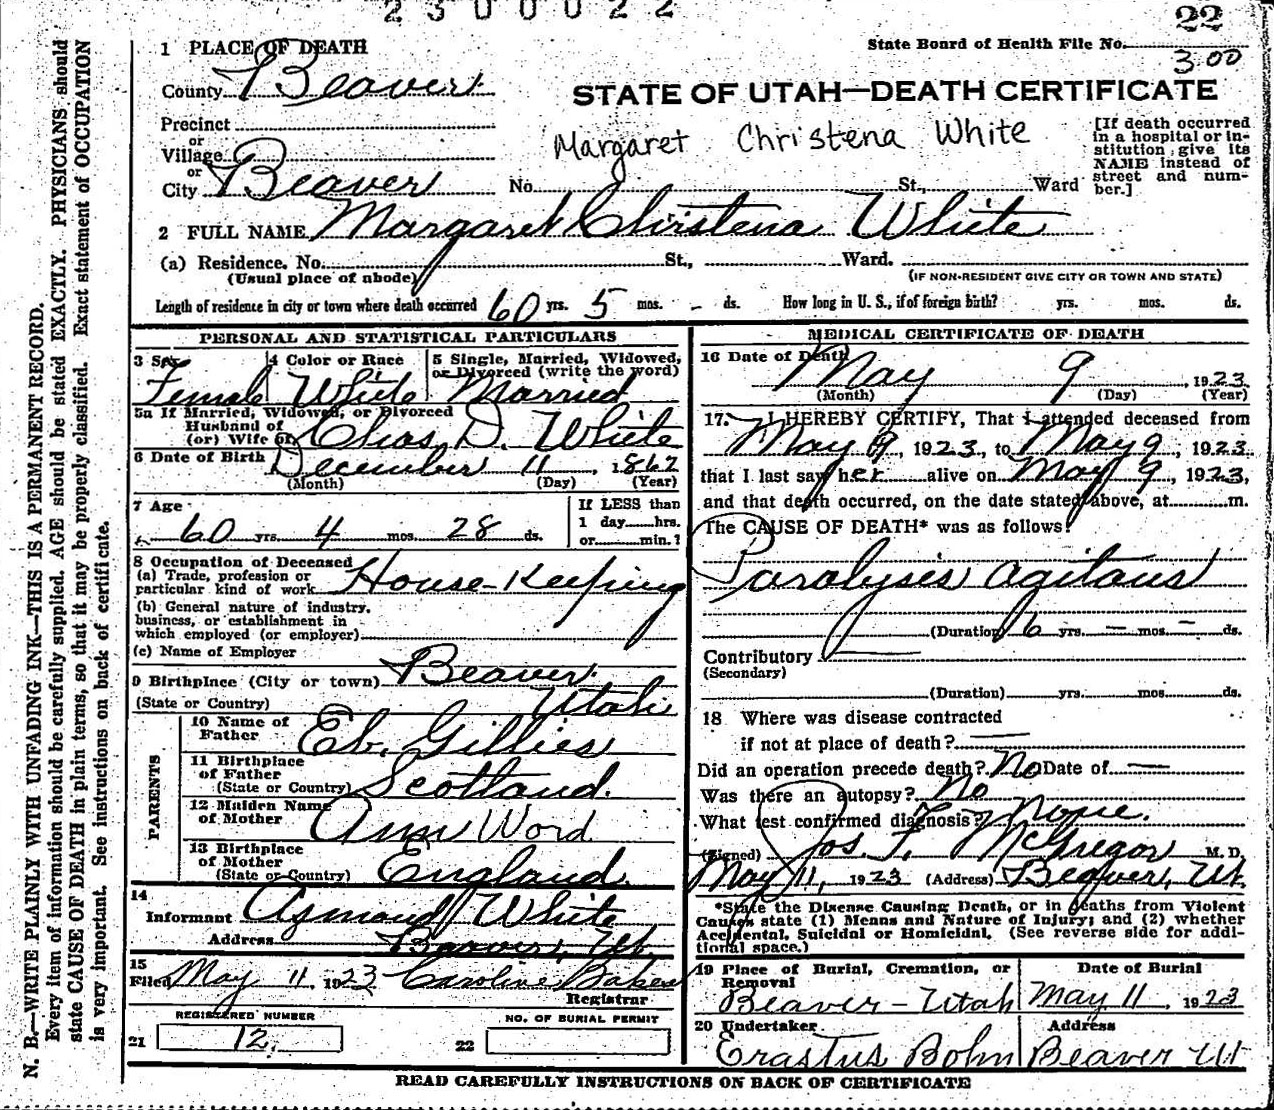 2300022
22
State Board of Health File No.
3.00
1 PLACE OF DEATH
County Beaver
STATE OF UTAH—DEATH CERTIFICATE
Precinct
or
Village
or
City Beaver
Margaret Christena White
[If death occurred in a hospital or in-
stitution give its
NAME instead of
street and num-
ber.]
No. St., Ward
2 FULL NAME Margaret Christena White
(a) Residence. No. St., Ward.
(Usual place of abode)
(IF NON-RESIDENT GIVE CITY OR TOWN AND STATE)
Length of residence in city or town where death occurred 60 yrs. 5 mos. - ds. How long in U. S., if of foreign birth? yrs. mos. ds.
PERSONAL AND STATISTICAL PARTICULARS
3 Sex
Female
4 Color or Race
White
5 Single, Married, Widowed,
or Divorced (write the word)
Married
5a If Married, Widowed, or Divorced
Husband of
(or) Wife of Chas. D. White
6 Date of Birth December 11, 1862
(Month) (Day) (Year)
7 Age
60 yrs. 4 mos. 28 ds.
If LESS than
1 day hrs.
or min.?
8 Occupation of Deceased
(a) Trade, profession or
particular kind of work House-Keeping
(b) General nature of industry,
business, or establishment in
which employed (or employer)
(c) Name of Employer
9 Birthplace (City or town) Beaver
(State or Country) Utah
PARENTS
10 Name of
Father Eb. Gillies
11 Birthplace
of Father
(State or Country) Scotland.
12 Maiden Name
of Mother Ann Word
13 Birthplace
of Mother
(State or Country) England.
14
Informant White
Address Beaver, Ut.
15
Filed May 11, 1923 Caroline Baker
Registrar
REGISTERED NUMBER
21 12.
NO. OF BURIAL PERMIT
22
MEDICAL CERTIFICATE OF DEATH
16 Date of Death
May 9, 1923
(Month) (Day) (Year)
17. I HEREBY CERTIFY, That I attended deceased from
May 9, 1923, to May 9, 1923.
that I last saw her alive on May 9, 1923,
and that death occurred, on the date stated above, at m.
The CAUSE OF DEATH* was as follows:
Paralysis agitans
(Duration) 6 yrs. — mos. — ds.
Contributory
(Secondary)
(Duration) yrs. mos. ds.
18 Where was disease contracted
if not at place of death? —
Did an operation precede death? No Date of —
Was there an autopsy? No
What test confirmed diagnosis? None.
(Signed) Jos. F. McGregor M. D.
May 11, 1923 (Address) Beaver, Ut.
*State the Disease Causing Death, or in deaths from Violent
Causes state (1) Means and Nature of Injury; and (2) whether
Accidental, Suicidal or Homicidal. (See reverse side for addi-
tional space.)
19 Place of Burial, Cremation, or
Removal
Beaver - Utah
Date of Burial
May 11, 1923
20 Undertaker
Erastus Bohn
Address
Beaver Ut
READ CAREFULLY INSTRUCTIONS ON BACK OF CERTIFICATE
N. B.—WRITE PLAINLY WITH UNFADING INK—THIS IS A PERMANENT RECORD.
Every item of information should be carefully supplied. AGE should be stated EXACTLY. PHYSICIANS should
state CAUSE OF DEATH in plain terms, so that it may be properly classified. Exact statement of OCCUPATION
is very important. See instructions on back of certificate.